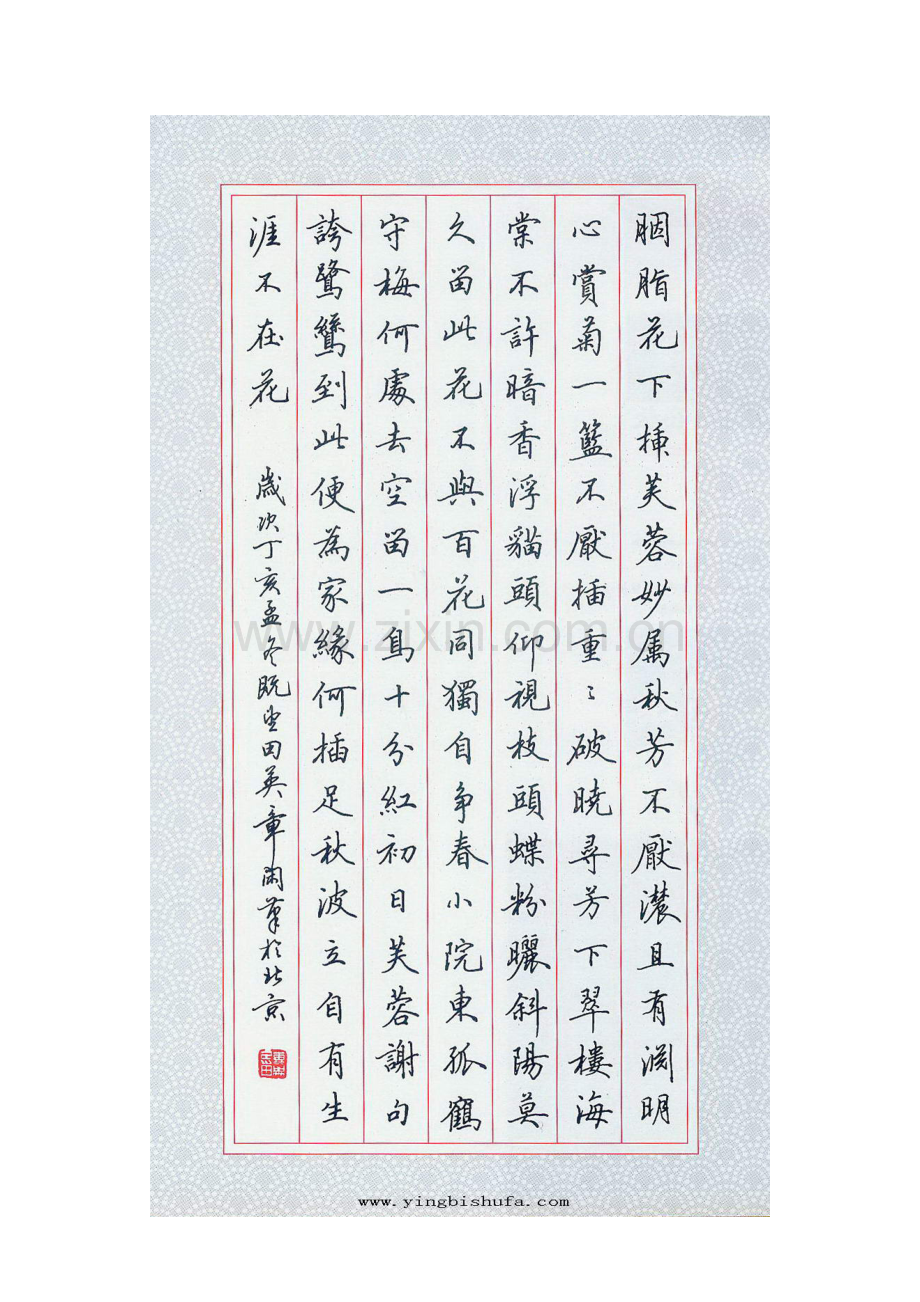 胭脂花下插芙蓉妙属秋芳不厭濃且有渊明
心賞菊一籃不厭插重〻破曉尋芳下翠樓海
棠不許暗香浮貓頭仰視枝頭蝶粉曬斜陽莫
久留此花不與百花同獨自争春小院東孤鶴
守梅何處去空留一鳥十分紅初日芙蓉謝句
誇鷺鷥到此便為家緣何插足秋波立自有生
涯不在花
歲次丁亥孟冬既望田英章閑筆於北京
www.zixin.com.cn
www.yingbishufa.com